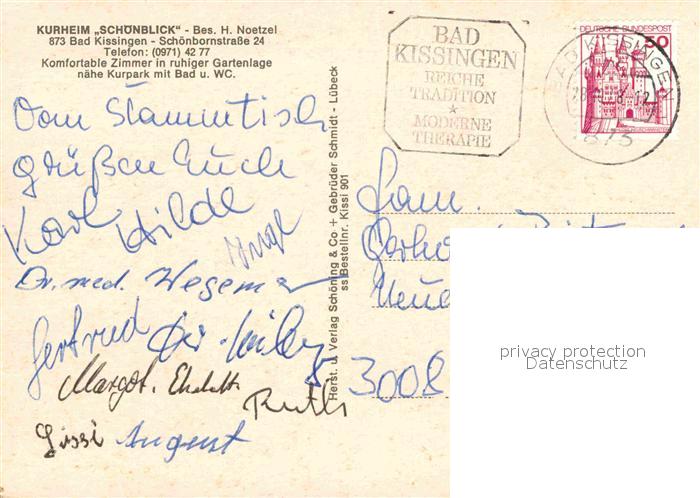 KURHEIM „SCHÖNBLICK" - Bes. H. Noetzel
873 Bad Kissingen - Schönbornstraße 24
Telefon: (0971) 42 77
Komfortable Zimmer in ruhiger Gartenlage
nähe Kurpark mit Bad u. WC.
Vom Stammtisch
grüßen Euch
Karl Hilde
Dr. med. Wegener
Gertrud
Margot
Ruth
Sissi August
Herst. u. Verlag Schöning & Co + Gebrüder Schmidt - Lübeck
ss Bestellnr. Kissi 901
BAD
KISSINGEN
REICHE
TRADITION
★
MODERNE
THERAPIE
BAD KISSINGEN
8730
DEUTSCHE BUNDESPOST
50
Fam.
3008
privacy protection
Datenschutz